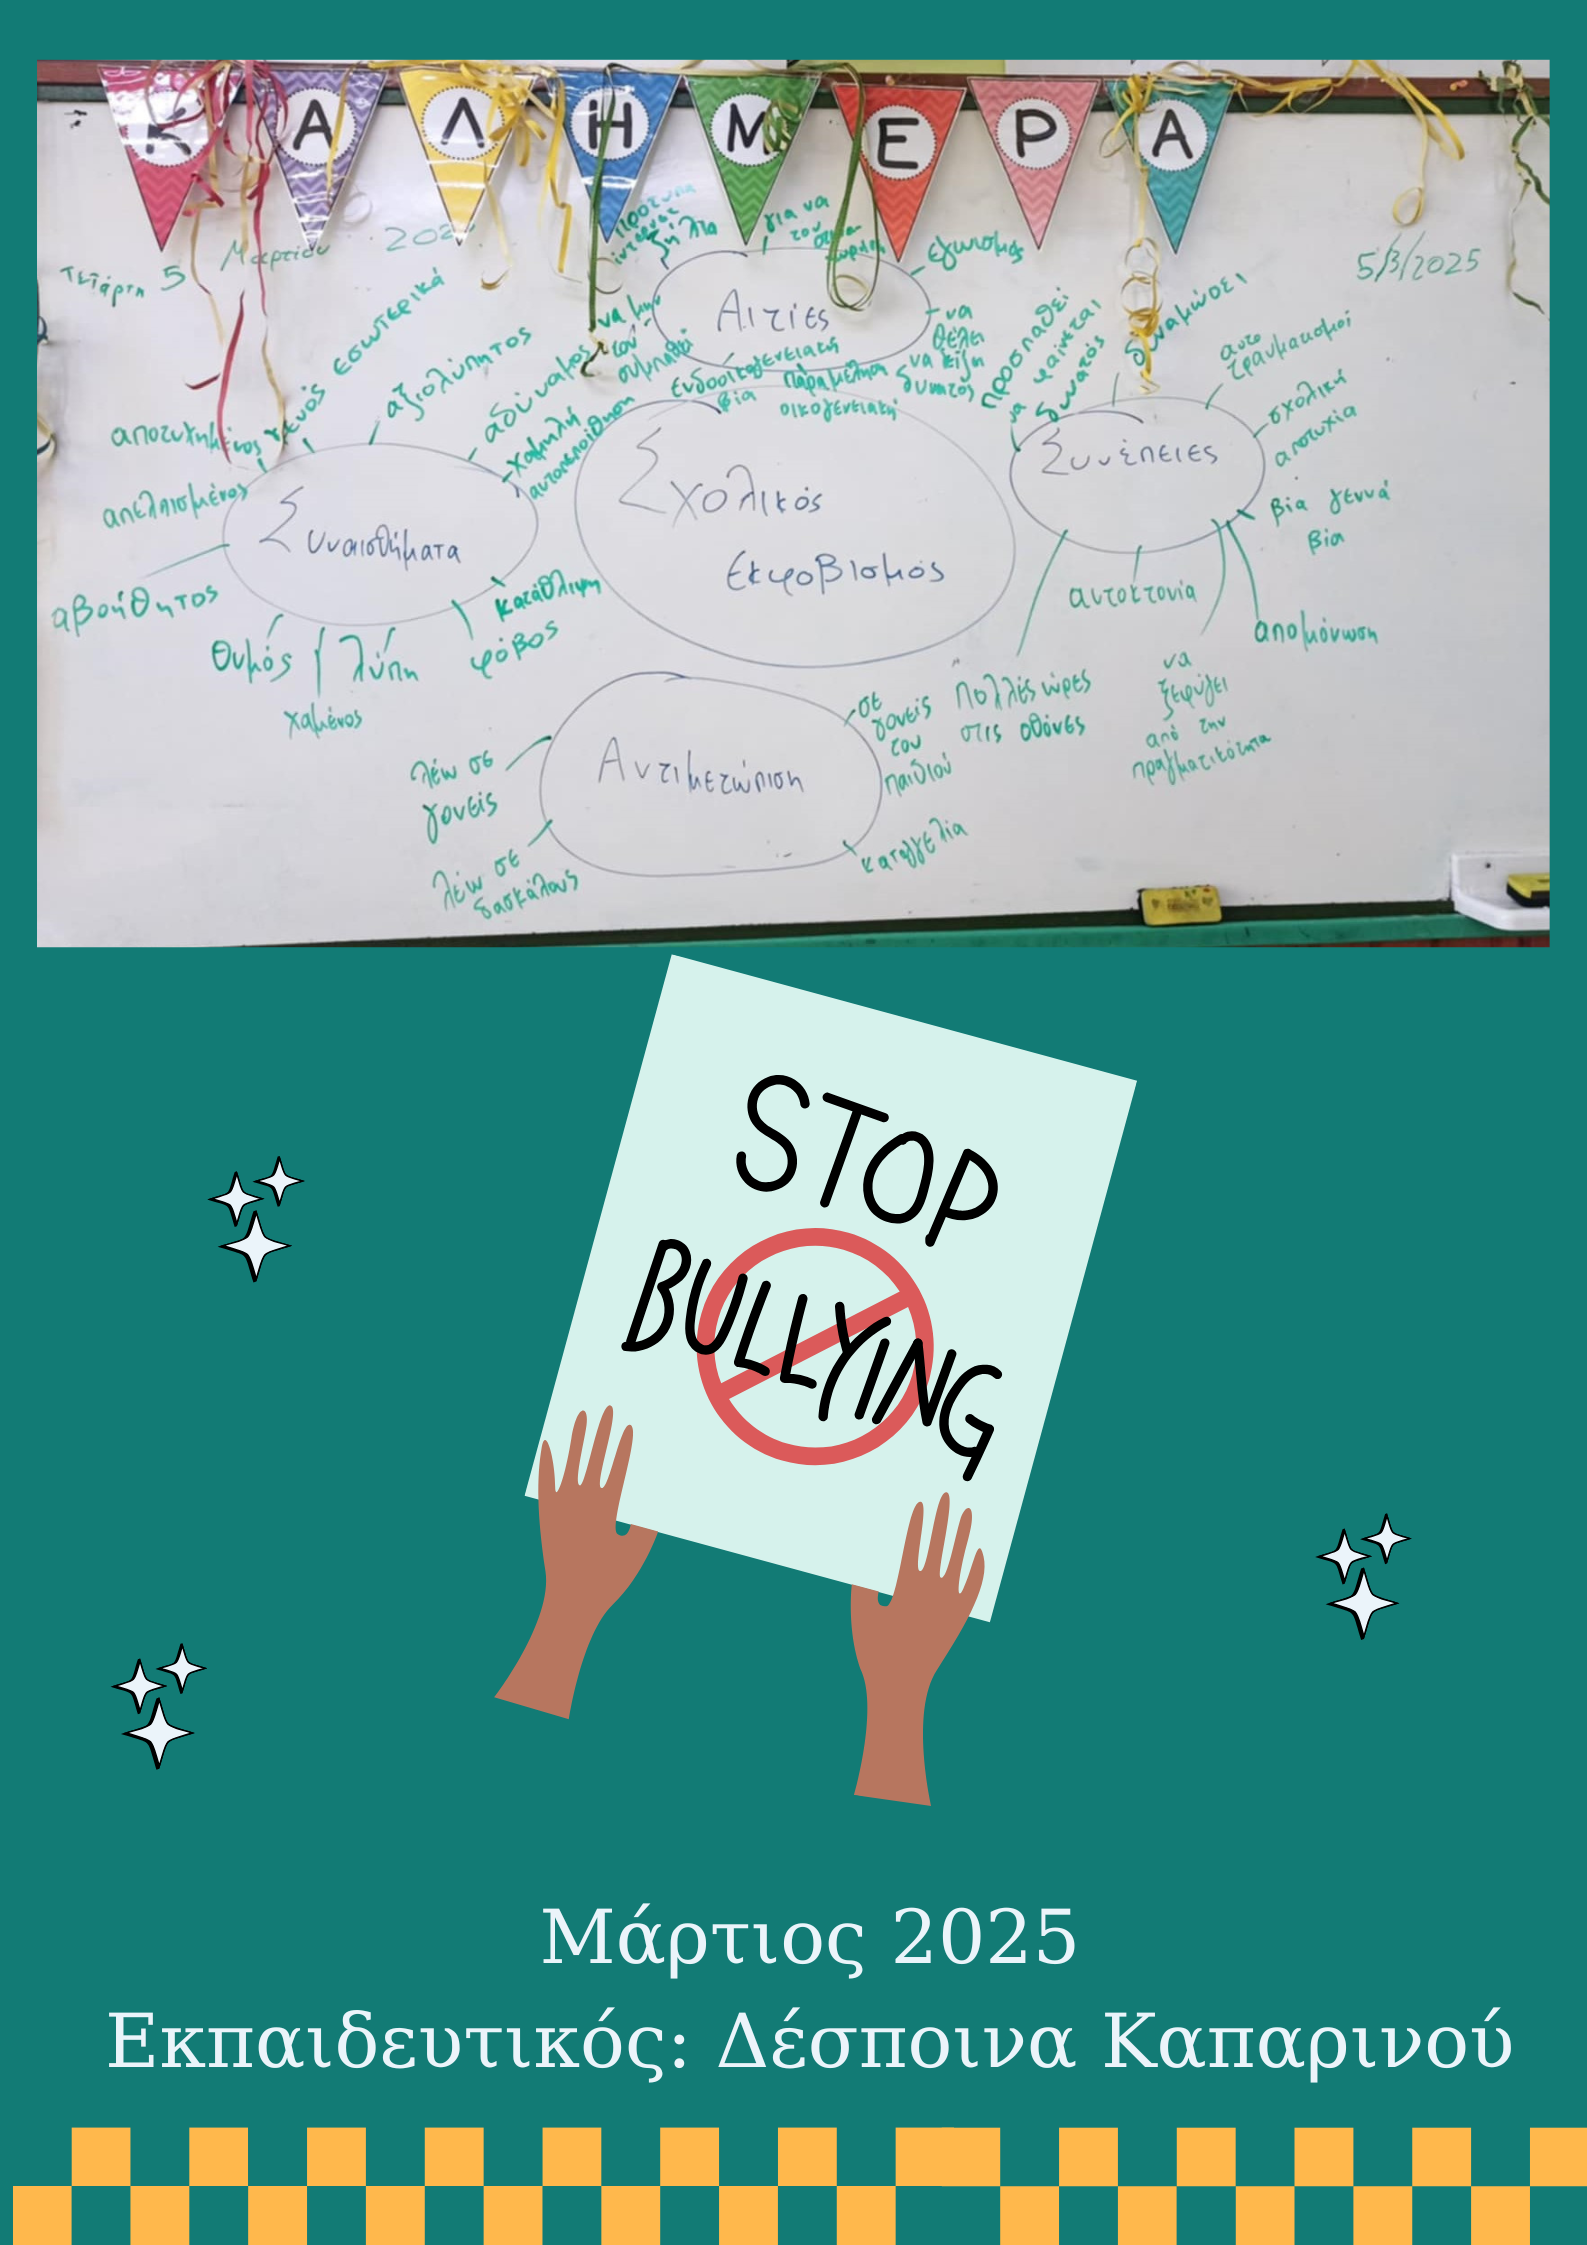 ΚΑΛΗΜΕΡΑ
Τετάρτη 5 Μαρτίου
5/3/2025
Αιτίες
ζήλια
για να
του
εγωισμός
να
θέλει
να
δυνατός
να μην
τον
ενδοοικογενειακή
βία
παραμέληση
οικογενειακή
Σχολικός
Εκφοβισμός
Συναισθήματα
αποτυχημένος
κενός εσωτερικά
αξιολύπητος
αδύναμος
χαμηλή
αυτοπεποίθηση
απελπισμένος
αβοήθητος
θυμός
χαμένος
λύπη
φόβος
κατάθλιψη
Συνέπειες
προσπαθεί
να φαίνεται
δυνατός
δυναμώσει
αυτο
τραυματισμοί
σχολική
αποτυχία
βία γεννά
βία
απομόνωση
αυτοκτονία
να
ξεφύγει
από την
πραγματικότητα
Πολλές ώρες
στις οθόνες
Αντιμετώπιση
λέω σε
γονείς
λέω σε
δασκάλους
σε
γονείς
του
παιδιού
καταγγελία
STOP
BULLYING
Μάρτιος 2025
Εκπαιδευτικός: Δέσποινα Καπαρινού